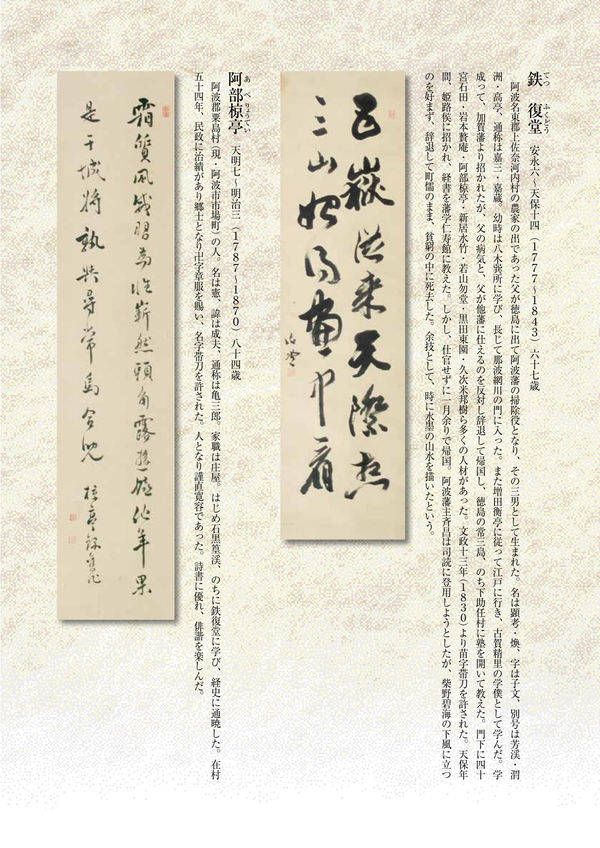 鉄　復堂　安永六～天保十四（1777～1843）六十七歳
てつ　ふくどう
阿波名東郡上佐奈河内村の農家の出であった父が徳島に出て阿波藩の掃除役となり、その三男として生まれた。名は顕考・煥、字は子文、別号は芳渓・渭
洲・高亭、通称は嘉三・嘉蔵。幼時は八木巽所に学び、長じて那波網川の門に入った。また増田衡亭に従って江戸に行き、古賀精里の学僕として学んだ。学
成って、加賀藩より招かれたが、父の病気と、父が他藩に仕えるのを反対し辞退して帰国し、徳島の常三島、のち下助任村に塾を開いて教えた。門下に四十
宮石田・岩本贅庵・阿部椋亭・新居水竹・若山勿堂・黒田東園・久次米邦樹ら多くの人材があった。文政十三年（1830）より苗字帯刀を許された。天保年
間、姫路侯に招かれ、経書を藩学仁寿館に教えた。しかし、仕官せずに一月余りで帰国。阿波藩主斉昌は司読に登用しようとしたが、柴野碧海の下風に立つ
のを好まず、辞退して町儒のまま、貧窮の中に死去した。余技として、時に水墨の山水を描いたという。
五嶽從来天際想
三山如何画中看
阿部椋亭　天明七～明治三（1787～1870）八十四歳
あべりょうてい
阿波郡粟島村（現・阿波市市場町）の人。名は憲、諱は成夫、通称は亀三郎。家職は庄屋。はじめ石黒篁渓、のちに鉄復堂に学び、経史に通暁した。在村
五十四年、民政に治績があり郷士となり卍字章服を賜い、名字帯刀を許された。人となり謹直寛容であった。詩書に優れ、俳諧を楽しんだ。
霜質風
嶄然頭角露
年果
是干城将孰与尋常鳥合